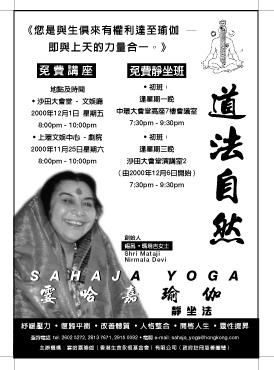 《您是與生俱來有權利達至瑜伽 —
即與上天的力量合一。》
免費講座
地點及時間
• 沙田大會堂 - 文娛廳
2000年12月1日 星期五
8:00pm - 10:00pm
• 上環文娛中心 - 劇院
2000年11月25日星期六
8:00pm - 10:00pm
免費靜坐班
• 初班:
逢星期一晚
中環大會堂高座7樓會議室
7:30pm - 9:30pm
• 初班:
逢星期三晚
沙田大會堂演講室2
(由2000年12月6日開始)
7:30pm - 9:30pm
道法自然
創始人
Shri Mataji
Nirmala Devi
SAHAJA YOGA
霎哈嘉瑜伽
靜坐法
紓緩壓力 • 復歸平衡 • 改善體質 • 人格整合 • 開悟人生 • 靈性提昇
查詢電話 tel: 2602 5272, 2813 7671, 2915 0892 • 電郵 e-mail: sahaja_yoga@hongkong.com